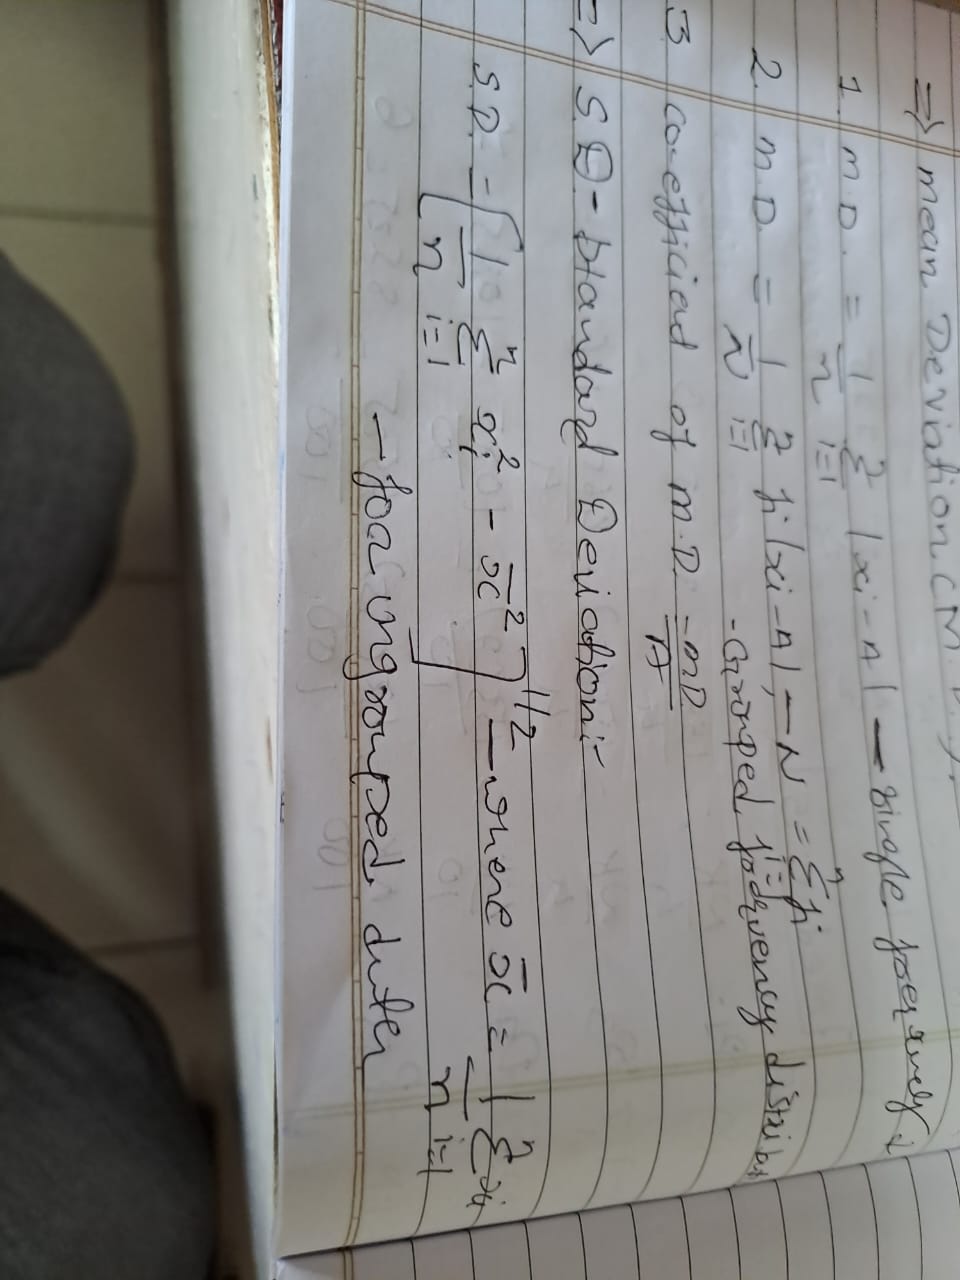 => mean Deviation (M.D.):
1. M.D. = 1/n Σ_{i=1}^{n} |xi - A| — single frequency
2. M.D. = 1/N Σ_{i=1}^{n} fi |xi - A|, — N = Σ_{i=1}^{n} fi
- Grouped frequency distribut
3 co-efficient of M.D. = MD/A
=> S.D - Standard Deviation:-
S.D. = [1/n Σ_{i=1}^{n} xi² - x̄²]^{1/2} — where x̄ = 1/n Σ_{i=1}^{n} xi
- for ungrouped data